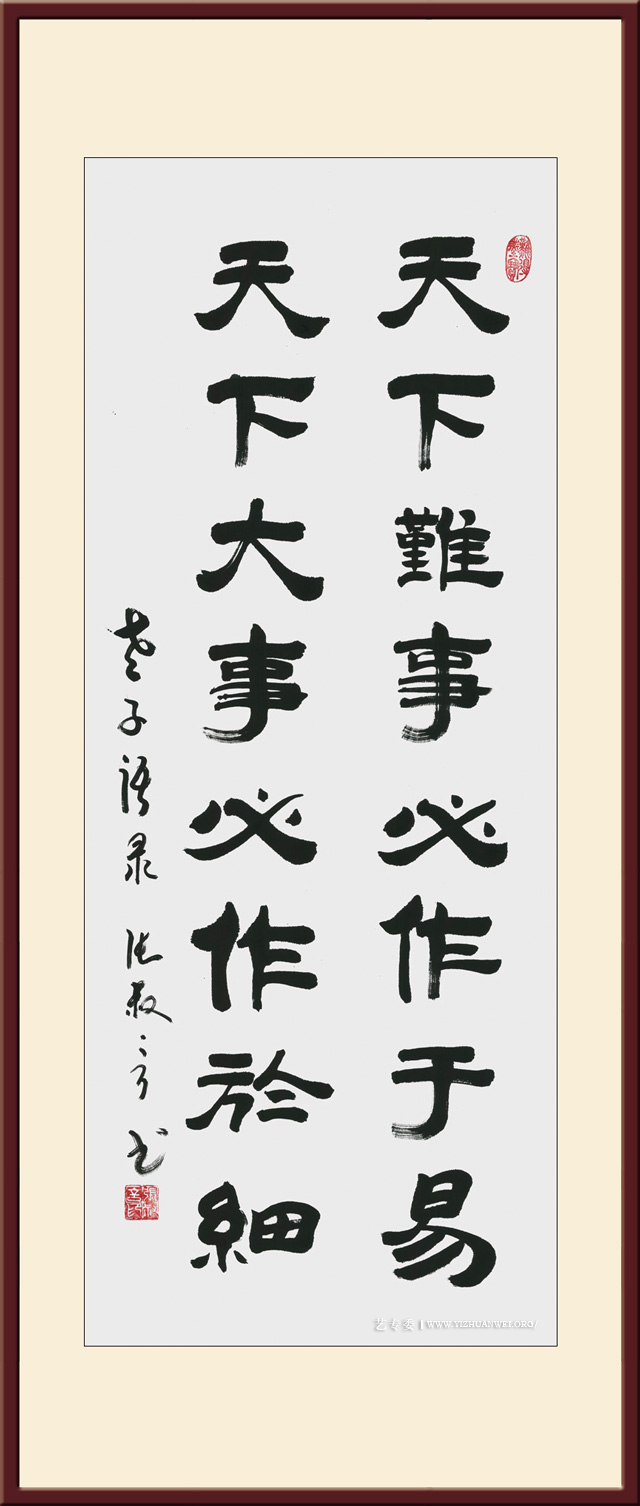 天下難事必作于易
天下大事必作於細
老子语录
书
艺专委 | WWW.YIZHUANWEI.ORG/